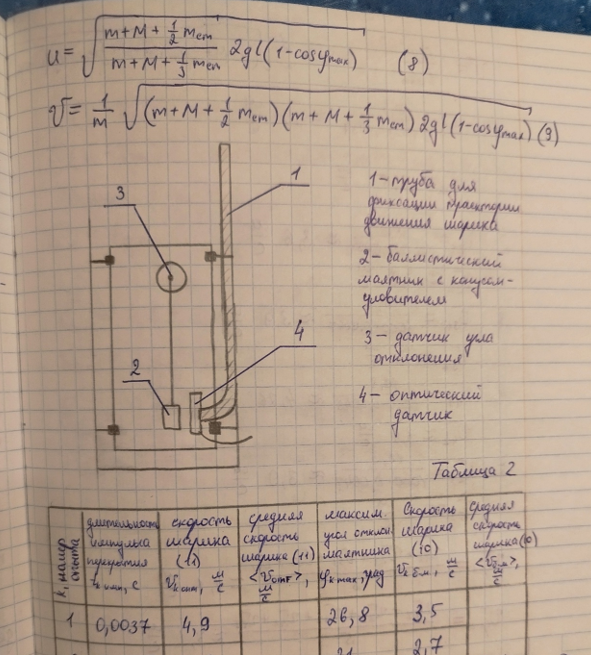 u = √((m + M + 1/2 mст)/(m + M + 1/3 mст) 2gl(1 - cosφmax)) (8)
V = 1/m √((m + M + 1/2 mст)(m + M + 1/3 mст) 2gl(1 - cosφmax)) (9)
1
3
4
2
1 - труба для
фиксации траектории
движения шарика
2 - баллистический
маятник с конусом-
уловителем
3 - датчик угла
отклонения
4 - оптический
датчик
Таблица 2
k, номер
опыта
длительность
импульса
перекрытия
tк опт, с
скорость
шарика
(11)
Vк опт, м/с
средняя
скорость
шарика (11)
<Vопт>,
м/с
максим.
угол отклон.
маятника
φк max, град
Скорость
шарика
(10)
Vк б.м., м/с
средняя
скорость
шарика (10)
<Vб.м>,
м/с
1 0,0037 4,9 26,8 3,5
2,7